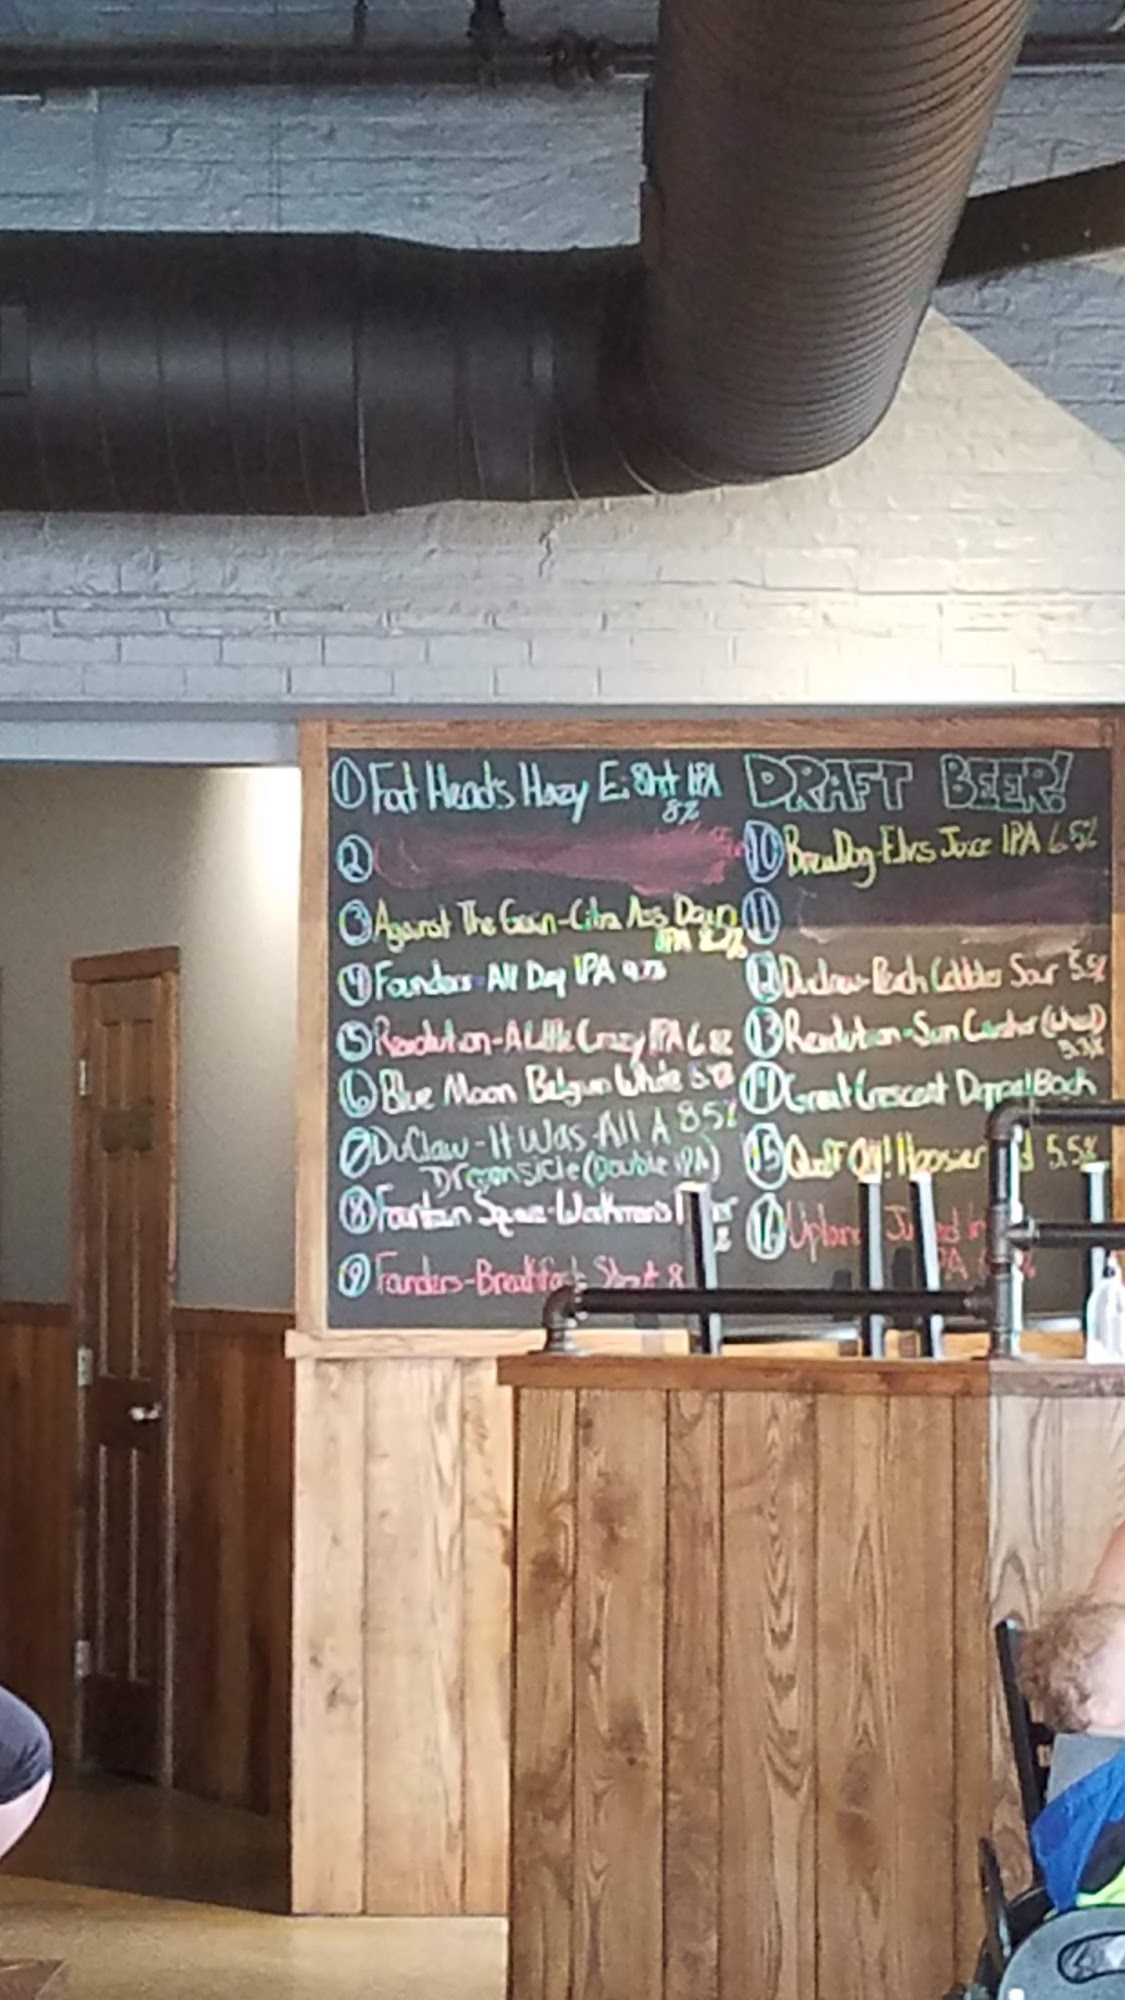 DRAFT BEER!
1 Fat Head's Hazy E: 8ht IPA
8%
2
3 Against The Grain-Citra Ass Down
IPA 8.2%
4 Founders-All Day IPA 4.7%
5 Revolution-A Little Crazy IPA 6.8%
6 Blue Moon Belgian White
7 DuClaw-It Was All A 8.5%
Dreamsicle (Double IPA)
8 Fountain Square-Workman's
9 Founders-Breakfast Stout 8
10 BrewDog-Elvis Juice IPA 6.5%
11
12 Duclaw-Peach Cobbler Sour 5.5%
13 Revolution-Sun Crusher (Wheat)
5.3%
14 Great Crescent Doppel Bock
15 Quaff On! Hoosier 5.5%
16 Upland